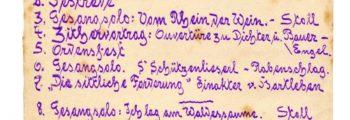 2. Festrede
3. Gesangsolo: Vom Rhein der Wein. - Skoll
4. Zithervortrag: Ouvertüre zu Dichter u. Bauer -
Engel.
5. Ordensfest
6. Gesangsolo. S' Schützenlieserl - Rabenschlag.
7. "Die sittliche Forderung" Einakter v. Hartleben
8. Gesangsolo: Ich lag am Waldessaume. Skoll